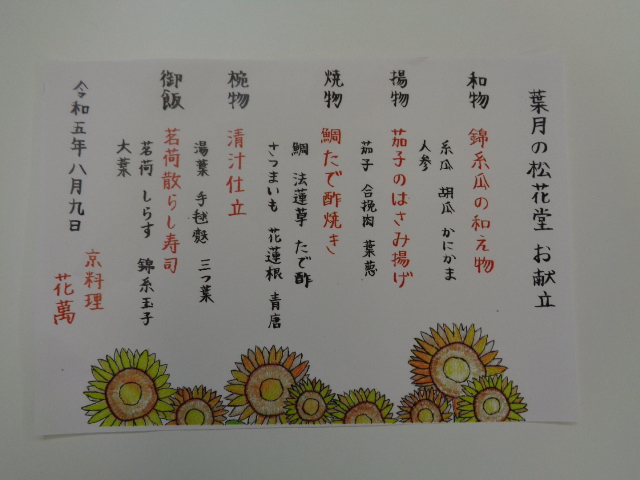 葉月の松花堂 お献立
和物 錦糸瓜の和え物
糸瓜 胡瓜 かにかま
人参
揚物 茄子のはさみ揚げ
茄子 合挽肉 葉葱
焼物 鯛たで酢焼き
鯛 法蓮草 たで酢
さつまいも 花蓮根 青唐
椀物 清汁仕立
湯葉 手毬麩 三つ葉
御飯 茗荷散らし寿司
茗荷 しらす 錦糸玉子
大葉
令和五年八月九日
京料理
花萬